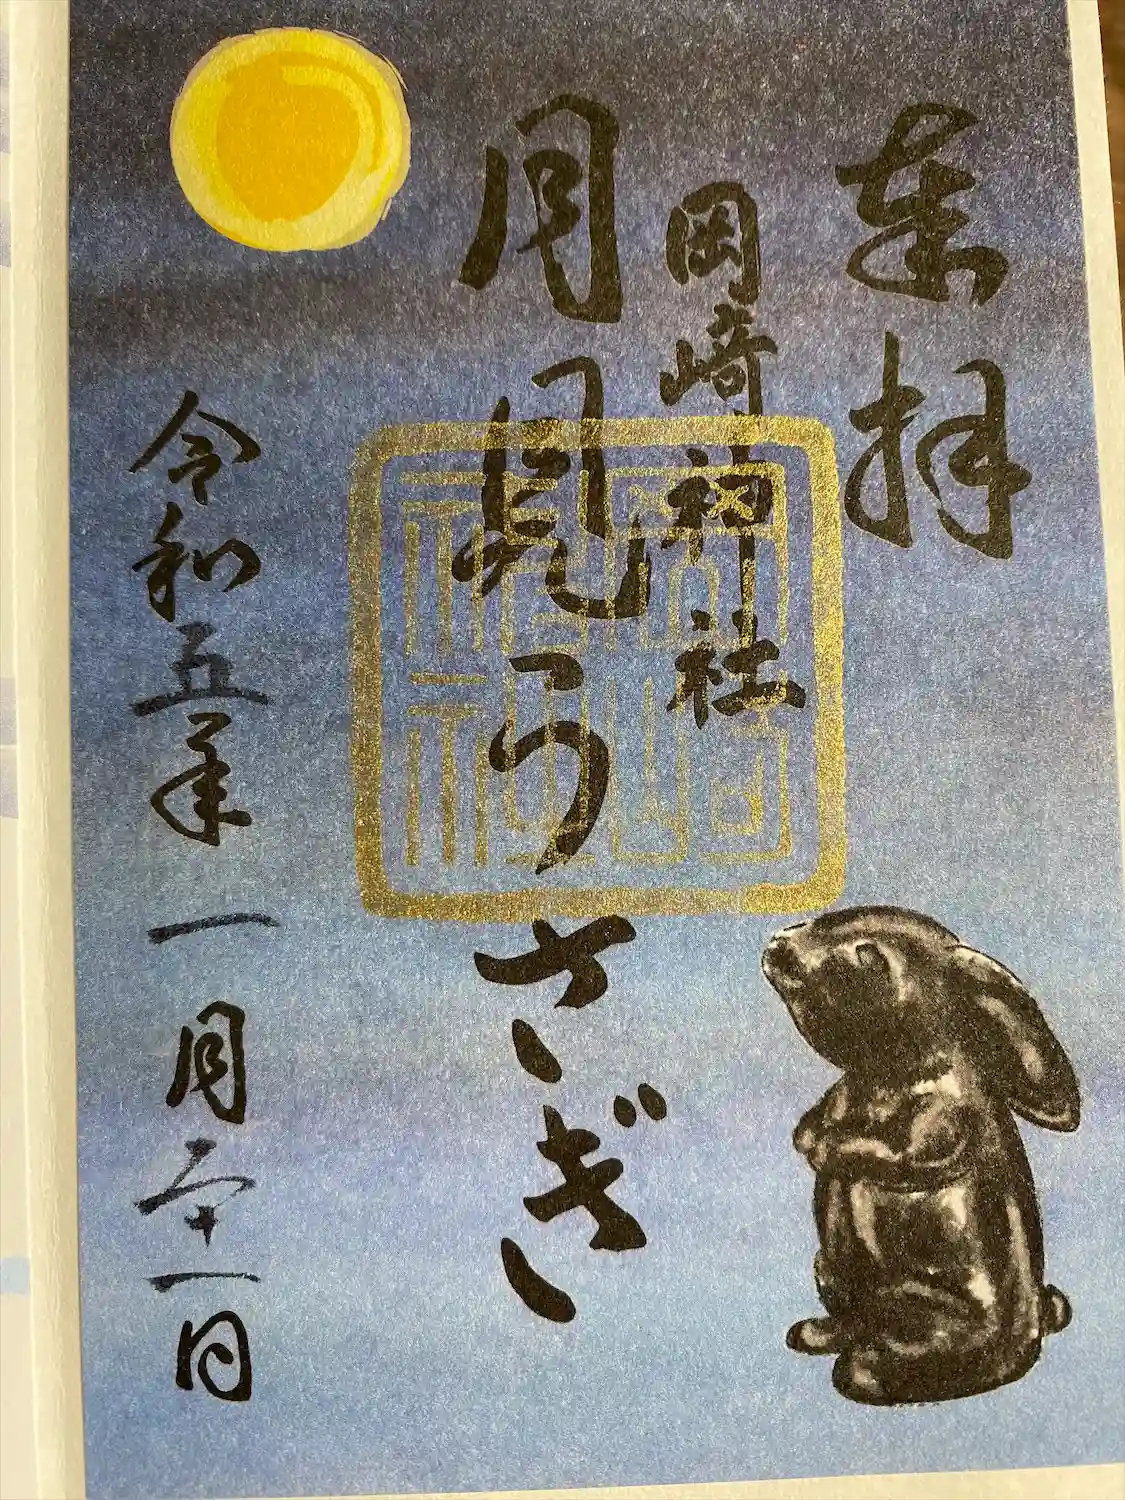 奉拝
岡崎神社
月見うさぎ
令和五年一月二十一日
岡崎
神社